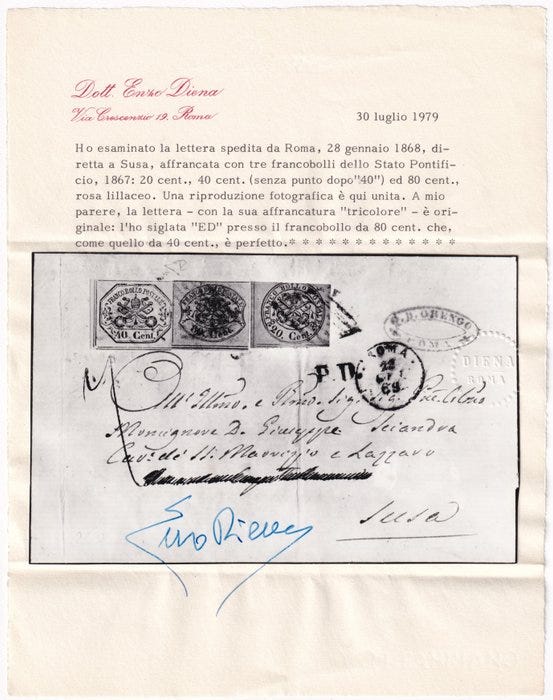 Dott. Enzo Diena
Via Crescenzio 19. Roma
30 luglio 1979
Ho esaminato la lettera spedita da Roma, 28 gennaio 1868, di-
retta a Susa, affrancata con tre francobolli dello Stato Pontifi-
cio, 1867: 20 cent., 40 cent. (senza punto dopo"40") ed 80 cent.,
rosa lillaceo. Una riproduzione fotografica è qui unita. A mio
parere, la lettera - con la sua affrancatura "tricolore" - è ori-
ginale: l'ho siglata "ED" presso il francobollo da 80 cent. che,
come quello da 40 cent., è perfetto.* * * * * * * * * * * * *
FRANCO BOLLO POSTALE
40 Cent.
FRANCO BOLLO POSTALE
Cent.
FRANCO BOLLO POSTALE
20 Cent.
ORENGO
ROMA
DIENA
ROMA
P.D.
ROMA
28
68
All' Illmo. e Rmo. Sig.
Monsignore D. Giuseppe Sciandra
Cav. de' SS. Maurizio e Lazzaro
Susa
Enzo Diena